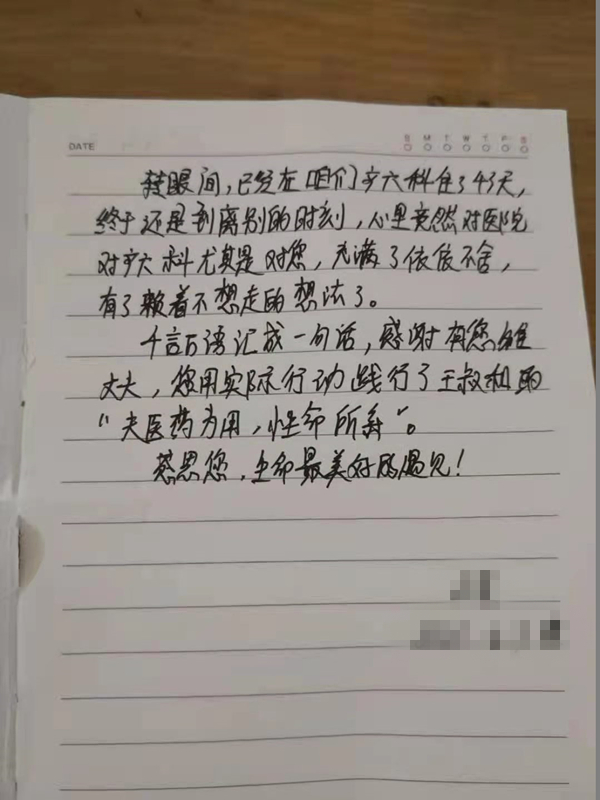 DATE
S M T W T F S
转眼间，已经在咱们产六科住了43天，
终于还是到离别的时刻，心里竟然对医院
对产六科尤其是对您，充满了依依不舍，
有了赖着不想走的想法了。
千言万语汇成一句话，感谢有您
丈夫，您用实际行动践行了王叔和
“夫医药为用，性命所系”。
感恩您，生命最美好的遇见！